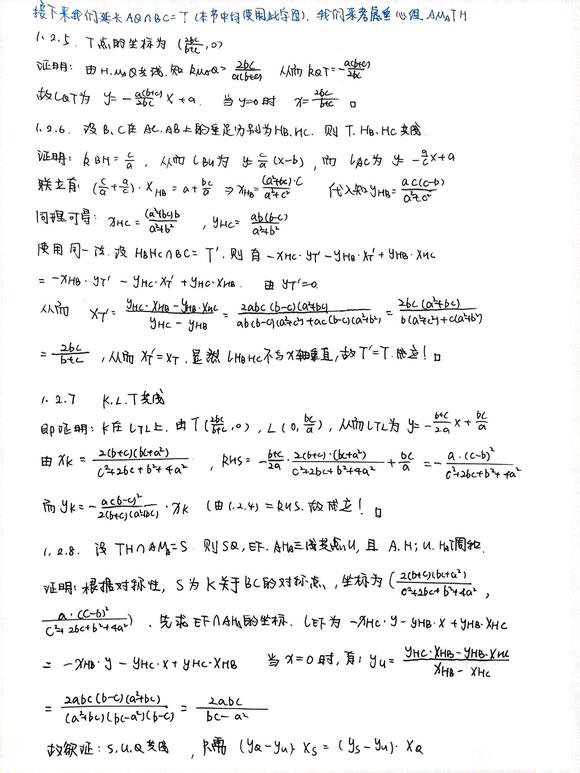 接下来我们延长AQ∩BC=T (本节中均使用此字图). 我们来考虑垂心组 AM_ATH
1.2.5. T点的坐标为 (2bc/(b+c), 0)
证明: 由H.M_A.Q共线. 知 k_{M_AQ} = 2bc/(a(b+c)) 从而 k_{QT} = -a(b+c)/(2bc)
故 l_{QT} 为 y = -a(b+c)/(2bc) x + a. 当 y=0 时 x = 2bc/(b+c) □
1.2.6. 设 B、C在 AC、AB 上的垂足分别为 H_B、H_C. 则 T、H_B、H_C 共线.
证明: k_{BH} = c/a, 从而 l_{BH} 为 y = c/a (x-b), 而 l_{AC} 为 y = -a/c x + a
联立有: (c/a + a/c)·x_{H_B} = a + bc/a ⇒ x_{H_B} = (a²+bc)·c/(a²+c²) 代入知 y_{H_B} = ac(c-b)/(a²+c²)
同理可得: x_{H_C} = (a²+bc)b/(a²+b²), y_{H_C} = ab(b-c)/(a²+b²)
使用同一法. 设 H_BH_C∩BC = T'. 则有 -x_{H_C}·y_{T'} - y_{H_B}·x_{T'} + y_{H_B}·x_{H_C}
= -x_{H_B}·y_{T'} - y_{H_C}·x_{T'} + y_{H_C}·x_{H_B}. 由 y_{T'}=0.
从而 x_{T'} = (y_{H_C}·x_{H_B} - y_{H_B}·x_{H_C})/(y_{H_C} - y_{H_B}) = 2abc(b-c)(a²+bc)/(ab(b-c)(a²+c²)+ac(b-c)(a²+b²)) = 2bc(a²+bc)/(b(a²+c²)+c(a²+b²))
= 2bc/(b+c), 从而 x_{T'} = x_T. 显然 l_{H_BH_C} 不与 x 轴垂直, 故 T'=T. 成立! □
1.2.7 K.L.T共线
即证明: K在 l_{TL} 上. 由 T(2bc/(b+c), 0), L(0, bc/a), 从而 l_{TL} 为 y = -(b+c)/(2a) x + bc/a
由 x_K = 2(b+c)(bc+a²)/(c²+2bc+b²+4a²), RHS = -(b+c)/(2a) · 2(b+c)·(bc+a²)/(c²+2bc+b²+4a²) + bc/a = -a·(c-b)²/(c²+2bc+b²+4a²)
而 y_K = -a(b-c)²/(2(b+c)(a²+bc)) · x_K (由1.2.4) = RHS. 故成立! □
1.2.8. 设 TH∩AM_A=S. 则 SQ, EF. AH_A三线共点U, 且 A.H; U.H_A调和.
证明: 根据对称性, S为K关于BC的对称点, 坐标为 (2(b+c)(bc+a²)/(c²+2bc+b²+4a²),
a·(c-b)²/(c²+2bc+b²+4a²)). 先求 EF∩AH_A的坐标. l_{EF} 为 -x_{H_C}·y - y_{H_B}·x + y_{H_B}·x_{H_C}
= -x_{H_B}·y - y_{H_C}·x + y_{H_C}·x_{H_B} 当 x=0时, 有: y_U = (y_{H_C}·x_{H_B} - y_{H_B}·x_{H_C})/(x_{H_B} - x_{H_C})
= 2abc(b-c)(a²+bc)/((a²+bc)(bc-a²)(b-c)) = 2abc/(bc-a²)
故欲证: S.U.Q共线, 只需 (y_Q-y_U)·x_S = (y_S-y_U)·x_Q